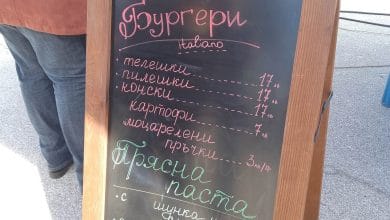 Бургери
· телешки ........ 17 лв
· пилешки ........ 17 лв
· конски ........ 17 лв
картофи ........ 7 лв
моцарелени
пръчки ... 3
Прясна
паста
· с
шунка